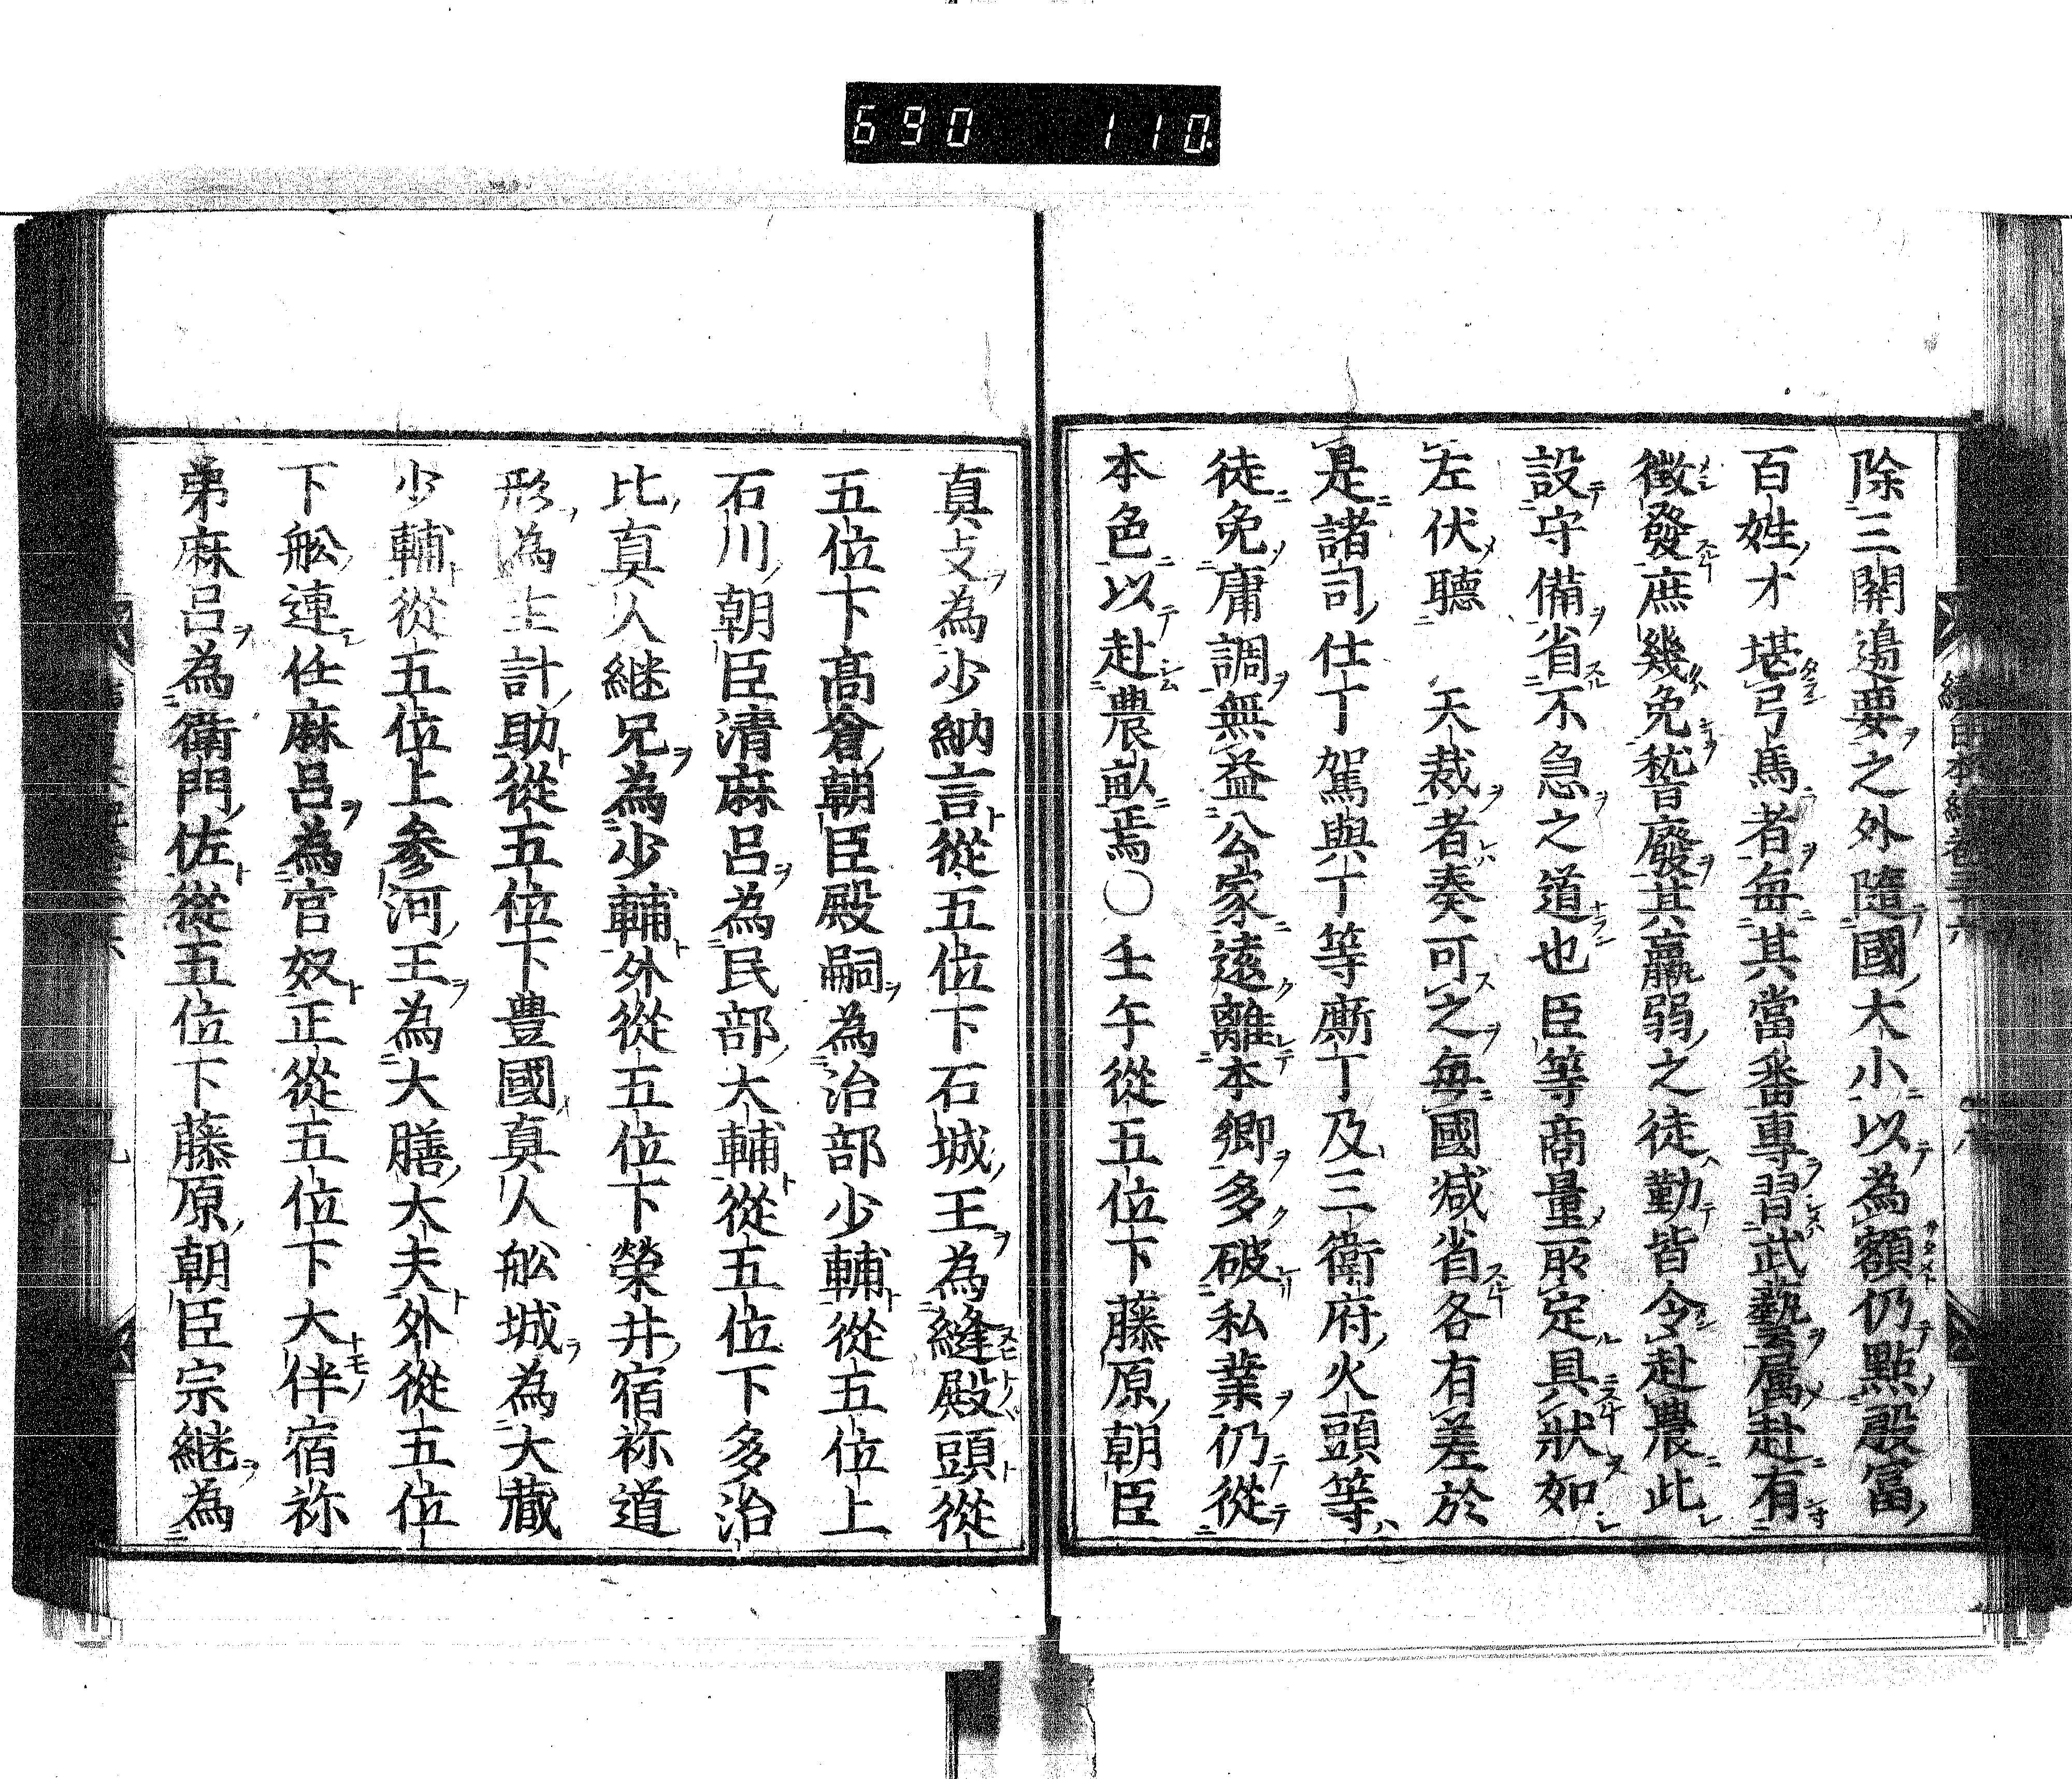 690 110.
除三關邊要之外隨國大小以為額仍點殷富
百姓才堪弓馬者每其當番專習武藝屬赴有
徵發庶幾免稽廢其羸弱之徒勤皆令赴農此
設守備省不急之道也臣等商量所定具狀如
左伏聽 天裁者奏可之每國減省各有差於
是諸司仕丁駕輿丁等廝丁及三衛府火頭等
徒免庸調無益公家遠離本鄉多破私業仍從
本色以赴農畝焉〇壬午從五位下藤原朝臣
真友為少納言從五位下石城王為縫殿頭從
五位下高倉朝臣殿嗣為治部少輔從五位上
石川朝臣清麻呂為民部大輔從五位下多治
比真人継兄為少輔外從五位下榮井宿祢道
形為主計助從五位下豊國真人舩城為大藏
少輔從五位上参河王為大膳大夫外從五位
下舩連任麻呂為官奴正從五位下大伴宿祢
弟麻呂為衛門佐從五位下藤原朝臣宗継為